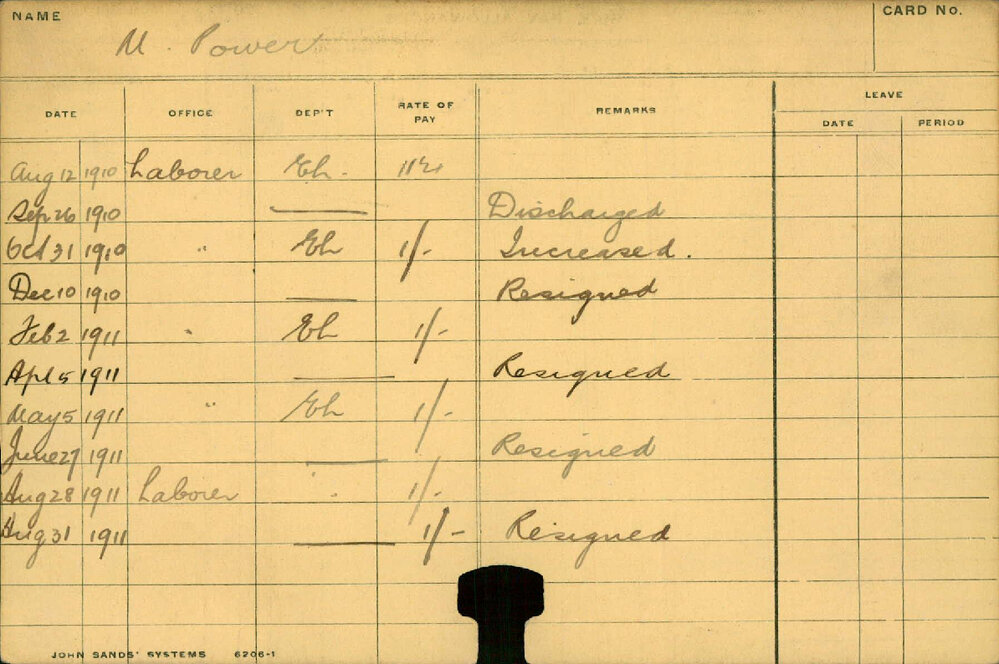 NAME
M. Power
CARD No.
DATE OFFICE DEP'T RATE OF PAY REMARKS LEAVE
DATE PERIOD
Aug 12 1910 Laborer Eh.
Sep 26 1910 Discharged
Oct 31 1910 " Eh 1/- Increased.
Dec 10 1910 Resigned
Feb 2 1911 " Eh 1/-
Apl 5 1911 Resigned
May 5 1911 " Eh 1/-
June 27 1911 Resigned
Aug 28 1911 Laborer 1/-
Aug 31 1911 1/- Resigned
JOHN SANDS' SYSTEMS 6206-1